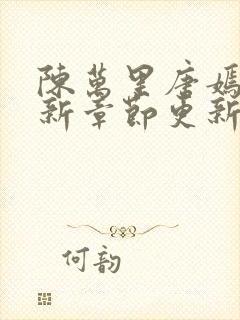 陳萬里唐嫣
新章節更新
何韵